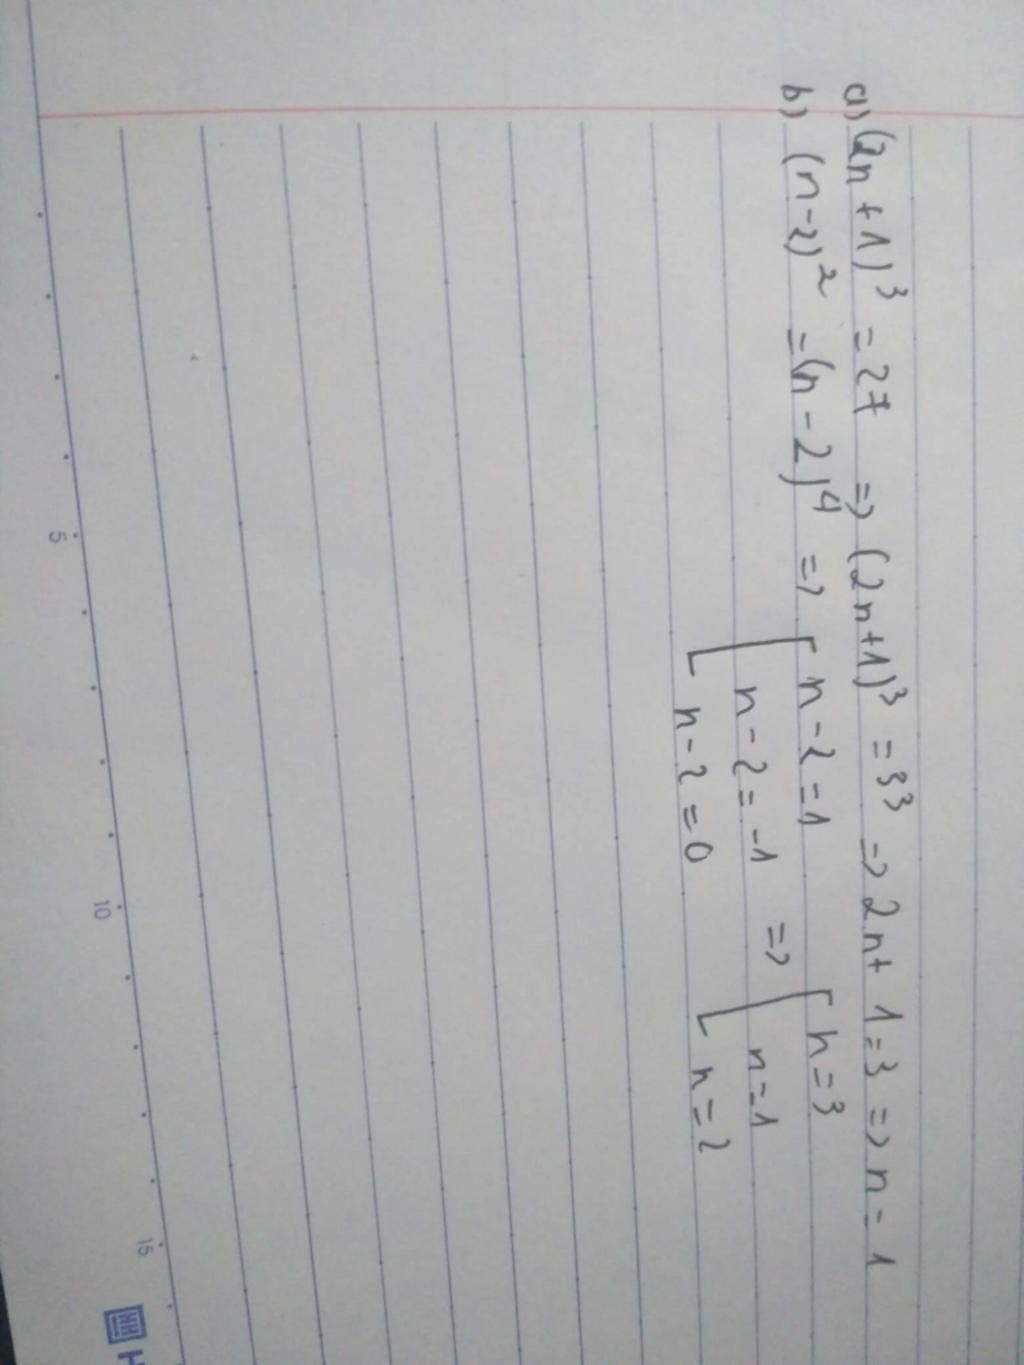 a) (2n + 1)³ = 27 => (2n+1)³ = 3³ => 2n + 1 = 3 => n = 1
b) (n-2)² = (n - 2)⁴ => [ n - 2 = 1 => [ n = 3
n - 2 = -1 n = 1
n - 2 = 0 n = 2
5 10 15